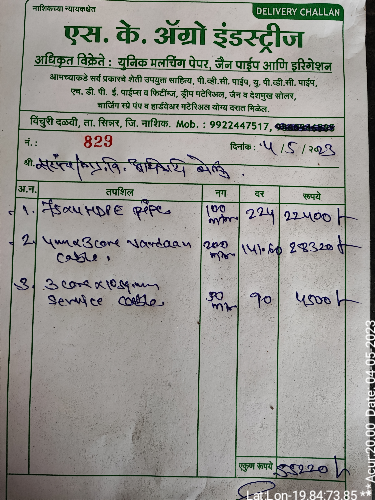 नाशिकच्या न्यायकक्षेत
DELIVERY CHALLAN
एस. के. ॲग्रो इंडस्ट्रीज
अधिकृत विक्रेते : युनिक मलचिंग पेपर, जैन पाईप आणि इरिगेशन
आमच्याकडे सर्व प्रकारचे शेती उपयुक्त साहित्य, पी.व्ही.सी. पाईप, यु. पी.व्ही.सी. पाईप,
एच. डी. पी. ई. पाईप्स व फिटींग्ज, ड्रीप मटेरिअल, जैन व देशमुख सोलर,
चार्जिंग स्प्रे पंप व हार्डवेअर मटेरिअल योग्य दरात मिळेल.
विंचुरी दळवी, ता. सिन्नर, जि. नाशिक. Mob. : 9922447517,
नं. : 829 दिनांक : 4/5/2023
श्री.
अ.नं. तपशिल नग दर रूपये
1. 75x4 HDPE pipe 100 224 22400/-
2. 4mmx3core Vardaan 200 141.60 28320/-
cable.
3. 3corex10sqmm 50 90 4500/-
service cable
एकुण रूपये 55220/-
Lat Lon-19.84:73.85 **Acur.20.00 Date.04.05.2023